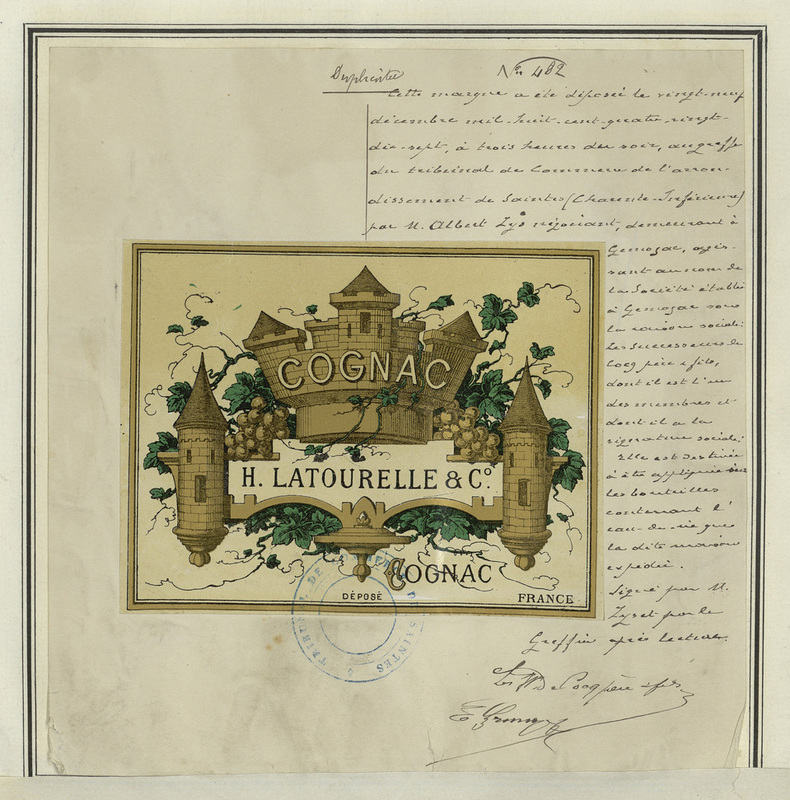 Duplicata
No 482
Cette marque a été déposée le vingt-neuf
décembre mil-huit-cent-quatre-vingt-
dix-sept, à trois heures du soir, au greffe
du tribunal de Commerce de l'arron-
dissement de Saintes (Charente-Inférieure)
par M. Albert négociant, demeurant à
Gemozac, agis-
sant au nom de
la Société établie
à Gemozac sous
la raison sociale:
Les Successeurs de
Cocq père & fils,
dont il est l'un
des membres et
dont il a la
signature sociale.
Elle est destinée
à être appliquée sur
les bouteilles
contenant l'
eau-de-vie que
la dite maison
expédie.
Signé par M.
et par le
Greffier après lecture.
COGNAC
H. LATOURELLE & Co.
COGNAC
DÉPOSÉ
FRANCE
TRIBUNAL DE COMMERCE DE SAINTES
Les Srs De Cocq père & fils